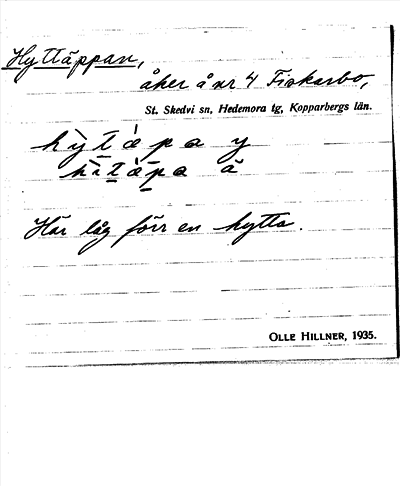 Hyttäppan,
åker å nr 4 Fiskarbo,
St. Skedvi sn, Hedemora tg, Kopparbergs län.
Här låg förr en hytta.
OLLE HILLNER, 1935.